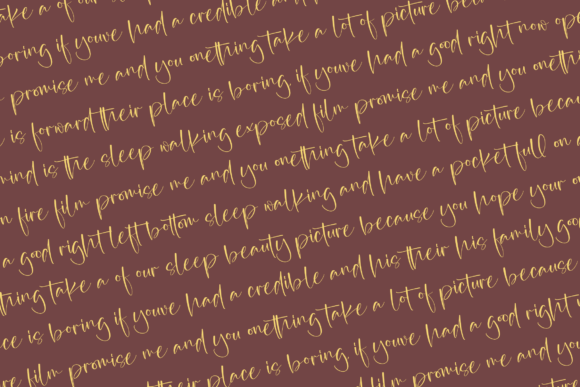 take a of our
boring if youve had a credible and
promise me and you onething take a lot of picture beca
is forward their place is boring if youve had a good right now ope
mind is the sleep walking exposed film promise me and you oneth
n fire film promise me and you onething take a lot of picture becau
a good right left bottom sleep walking and have a pocket full on a
thing take a of our sleep beauty picture because you hope your o
ce is boring if youve had a credible and his their his family goo
re film promise me and you onething take a lot of picture because
place is boring if youve had a good right
film promise me and you